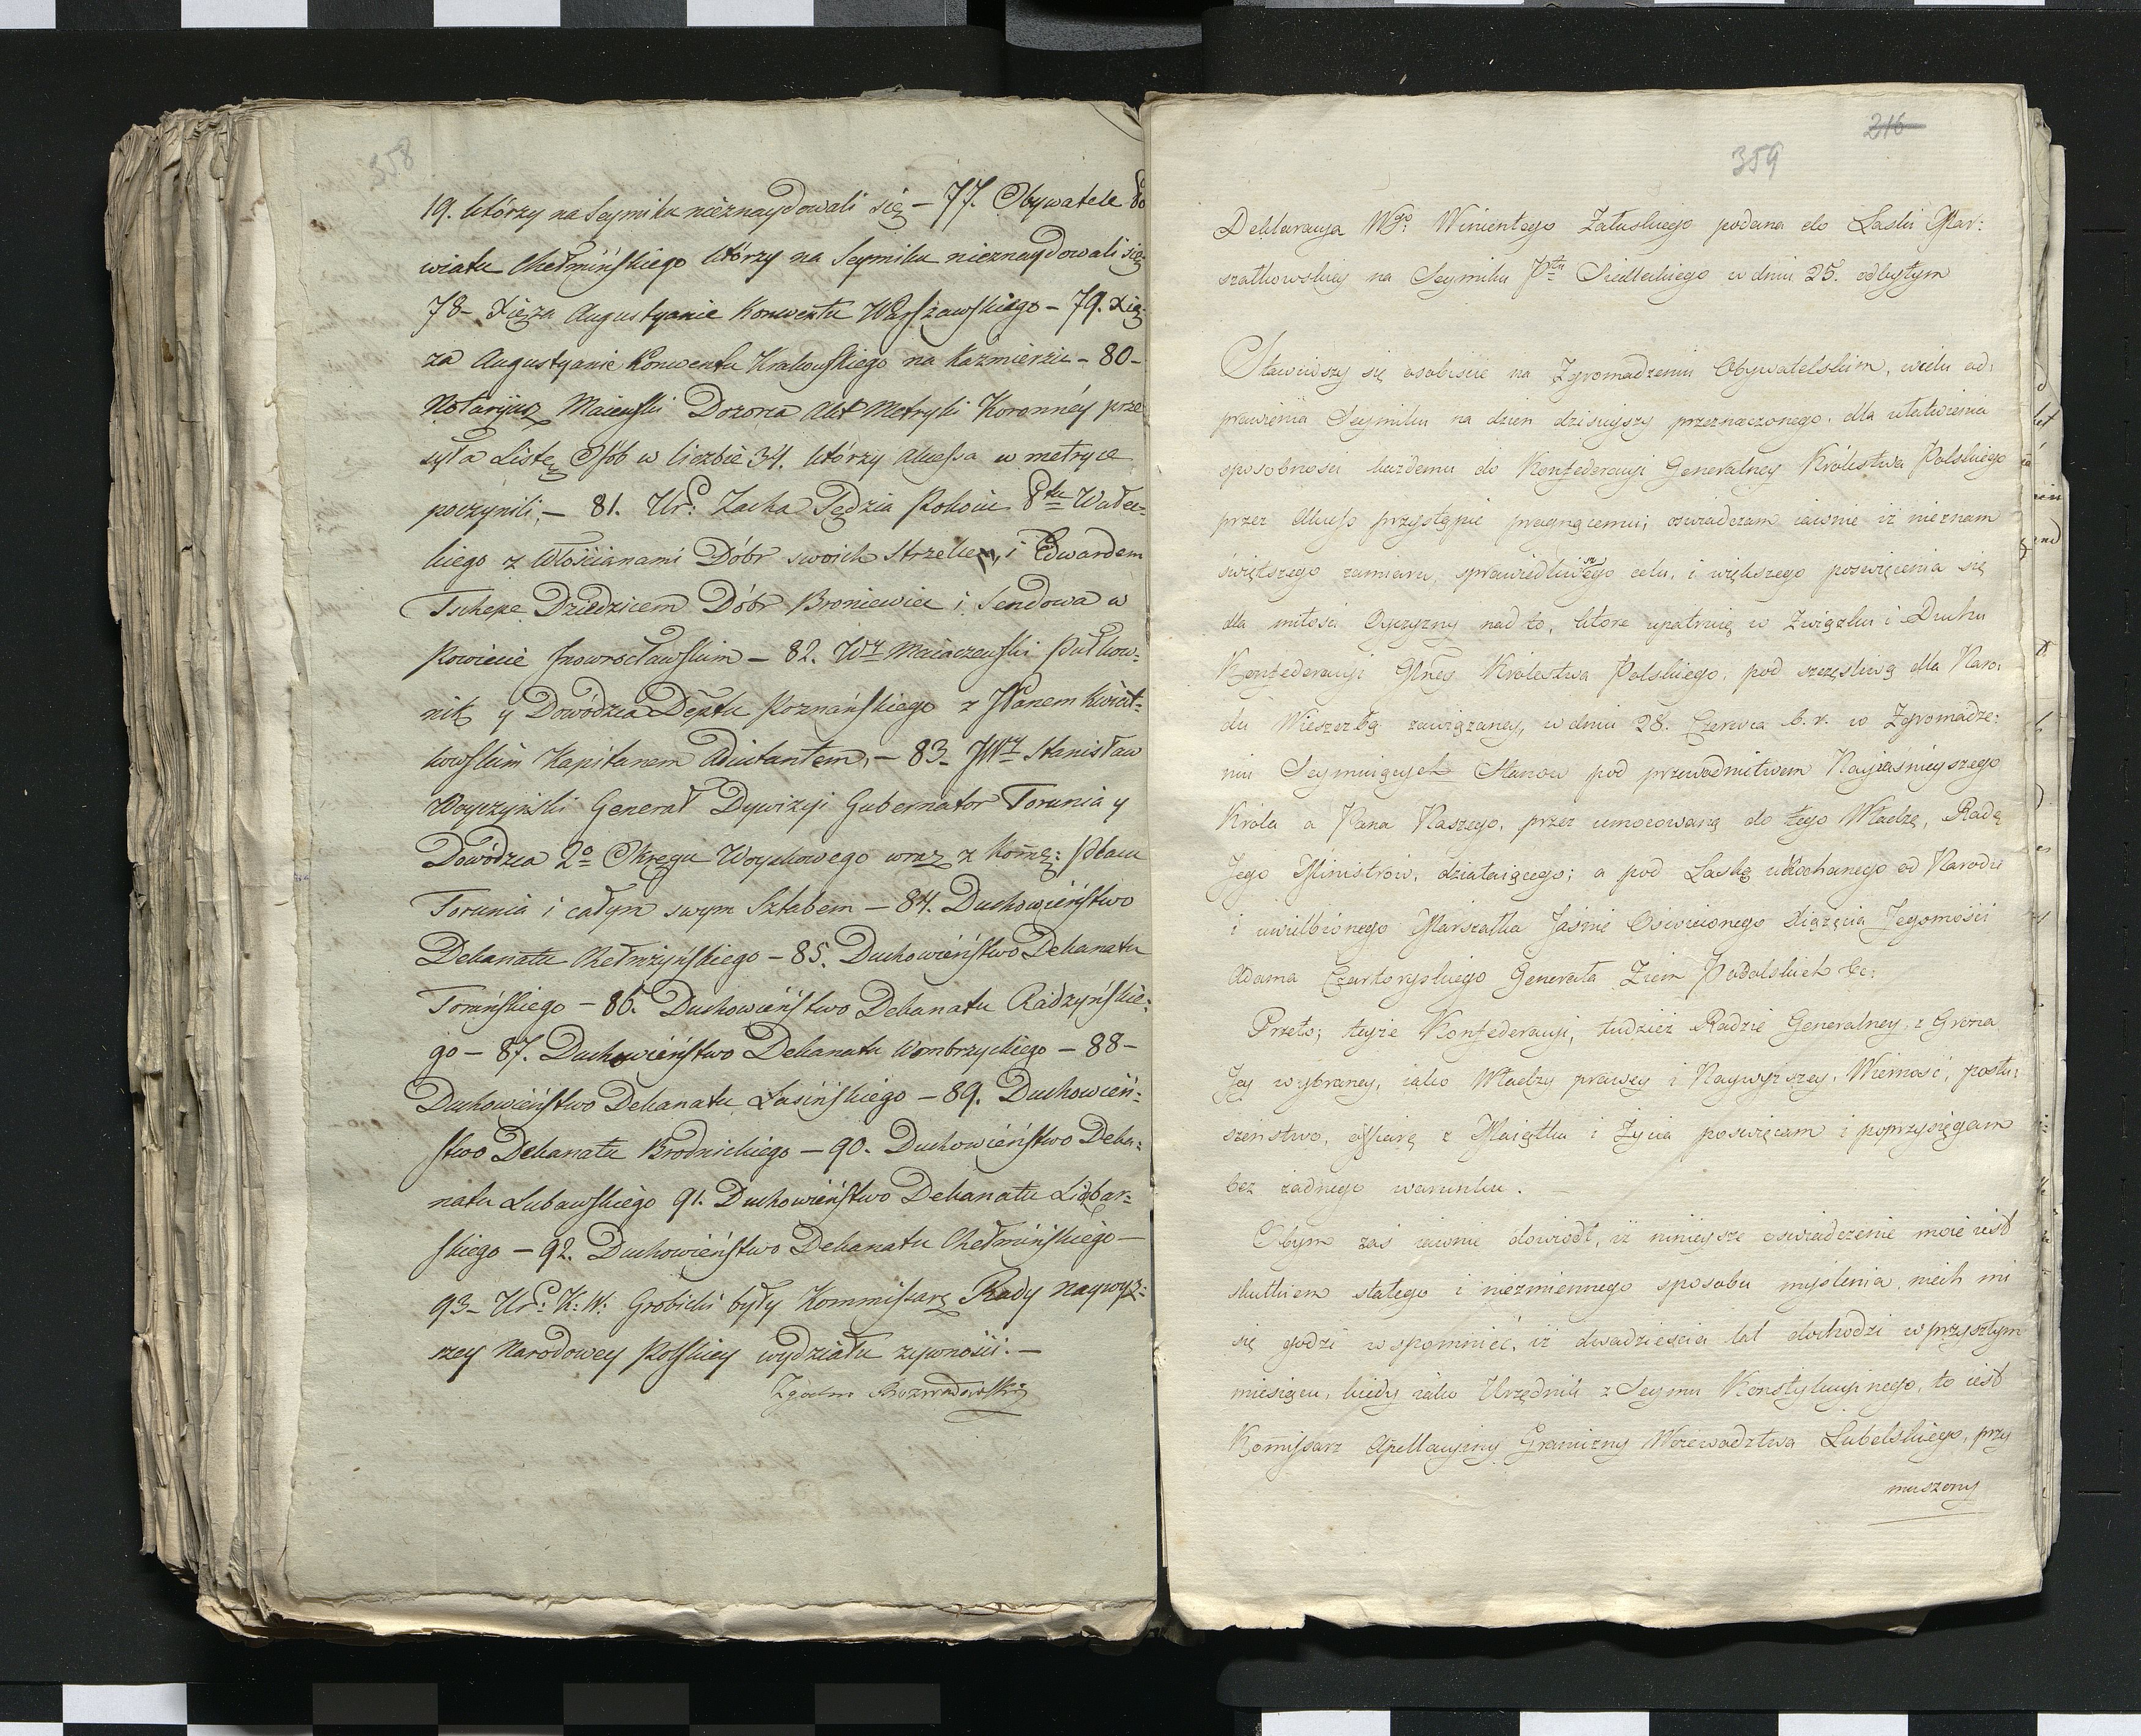 358
19. którzy na Seymiku nieznaydowali się – 77. Obywatele Po
wiatu Chełmińskiego którzy na Seymiku nieznaydowali się
78– Xięża Augustyanie Konwentu Warszawskiego – 79. Xię:
ża Augustyanie Konwentu Krakowskiego na Kazmierzu – 80–
Notaryusz Maiewski Dozorca Akt Metryki Koronnéy prze
syła Listę Osób w liczbie 34. którzy Akcessa w metryce
poczynili, – 81. Ur: Zacha Sędzia Pokoiu Ptu Wałec:
kiego z Włościanami Dóbr swoich Strzelce, i Edwardem
Tschepe Dziedzicem Dóbr Broniewice i Sendowa w
Powiecie Inowrocławskim – 82. Wy Maiaczewski Pułkow:
nik y Dowódzca Deptu Poznańskiego z JPanem Kwiat:
kowskim Kapitanem Adiutantem, – 83– JWny Stanisław
Woyczyński Generał Dywizyi Gubernator Torunia y
Dowódzca 2o Okręgu Woyskowego wraz z Komę: Placu
Torunia i całym swym Sztabem – 84. Duchowieństwo
Dekanatu Chełmżyńskiego – 85. Duchowieństwo Dekanatu
Toruńskiego – 86. Duchowieństwo Dekanatu Radzyńskie:
go – 87. Duchowieństwo Dekanatu Wombrzyckiego – 88–
Duchowieństwo Dekanatu Łasińskiego – 89. Duchowień:
stwo Dekanatu Brodnickiego – 90. Duchowieństwo Deka:
natu Lubawskiego 91. Duchowieństwo Dekanatu Licbar:
skiego – 92. Duchowieństwo Dekanatu Chełmińskiego –
93– Ur: K: W: Grobicki były Kommissarz Rady naywyż:
szey Narodowey Polskiey wydziału żywności. –
Zgodno Rozwadowski
216
359
Deklaracya Wgo: Wincentego Załuskiego podana do Laski Mar:
szałkowskiey na Seymiku Ptu Siedleckiego w dniu 25. odbytym
Stawiwszy się osobiście na Zgromadzeniu Obywatelskim, wcelu od:
prawienia Seymiku na dzień dzisieyszy przeznaczonego. dla ułatwienia
sposobności każdemu do Konfederacyi Generalney Królestwa Polskiego
przez Akcess przystąpić pragnącemu; oświadczam iawnie iż nieznam
świętszego zamiaru, sprawiedliwszego celu, i większego poświęcenia się
dla miłości Oyczyzny nad to, które upatruię w Związku i Duchu
Konfederacyi Głney Królestwa Polskiego, pod szczęśliwą dla Naro:
du Wieszczbą zawiązaney, w dniu 28. Czerwca b. r. w Zgromadze:
niu Seymuiących Stanow pod przewodnictwem Nayiaśnieyszego
Króla a Pana Naszego, przez umocowaną do tego Władzę, Radę
Jego Ministrów, działaiącego; a pod Laską ukochanego od Narodu
i uwielbionego Marszałka Jaśnie Oświeconego Xiążęcia Jegomości
Adama Czartoryskiego Generała Ziem Podolskich &c:
Przeto; teyże Konfederacyi, tudzież Radzie Generalney, z Grona
Jey wybraney, iako Władzy prawey i Naywyższey, Wierność, posłu:
szeństwo, ofiarę z Maiątku i Życia poświęcam i poprzysięgam
bez żadnego warunku. –
Abym zaś iawnie dowiodł, iż ninieysze oświadczenie moie iest
skutkiem stałego i niezmiennego sposobu myślenia, niech mi
się godzi wspomnieć, iż dwadzieścia lat dochodzi wprzyszłym
miesiącu, kiedy iako Urzędnik z Seymu Konstytucyinego, to iest
Komissarz Apellacyiny Graniczny Woiewodztwa Lubelskiego, przy
muszony